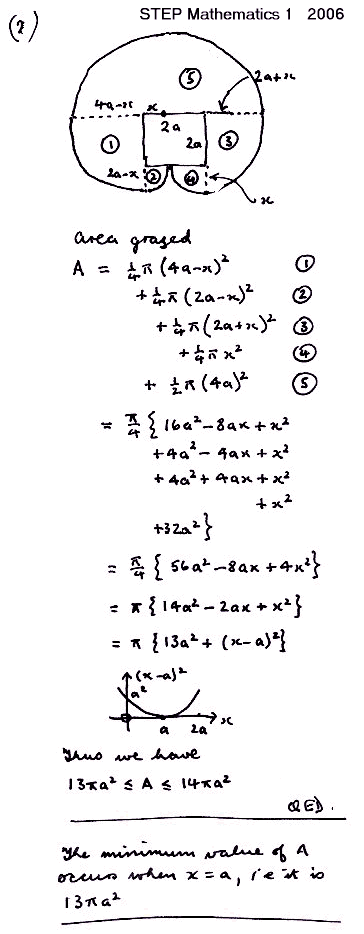 STEP Mathematics 1 2006
(2)
⑤
2a+x
4a-x
x
2a
①
2a
③
2a-x
②
④
x
area grazed
A = ¼π(4a-x)² ①
+ ¼π(2a-x)² ②
+ ¼π(2a+x)² ③
+ ¼πx² ④
+ ½π(4a)² ⑤
= π/4 { 16a² - 8ax + x²
+ 4a² - 4ax + x²
+ 4a² + 4ax + x²
+ x²
+32a² }
= π/4 { 56a² - 8ax + 4x² }
= π { 14a² - 2ax + x² }
= π { 13a² + (x-a)² }
(x-a)²
a²
a 2a x
Thus we have
13πa² ≤ A ≤ 14πa²
QED.
The minimum value of A
occurs when x = a, i.e it is
13πa²